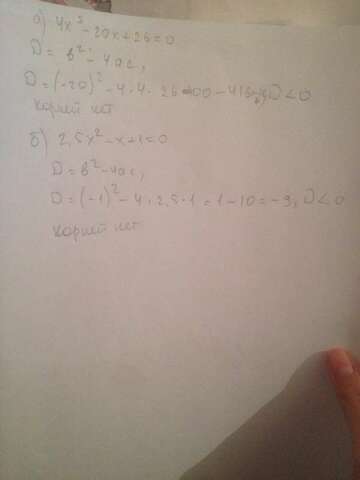 а) 4x² - 20x + 26 = 0
D = в² - 4ac,
D = (-20)² - 4 · 4 · 26 = 400 - 416 D < 0
корней нет
б) 2,5x² - x + 1 = 0
D = в² - 4ac,
D = (-1)² - 4 · 2,5 · 1 = 1 - 10 = -9, D < 0
корней нет